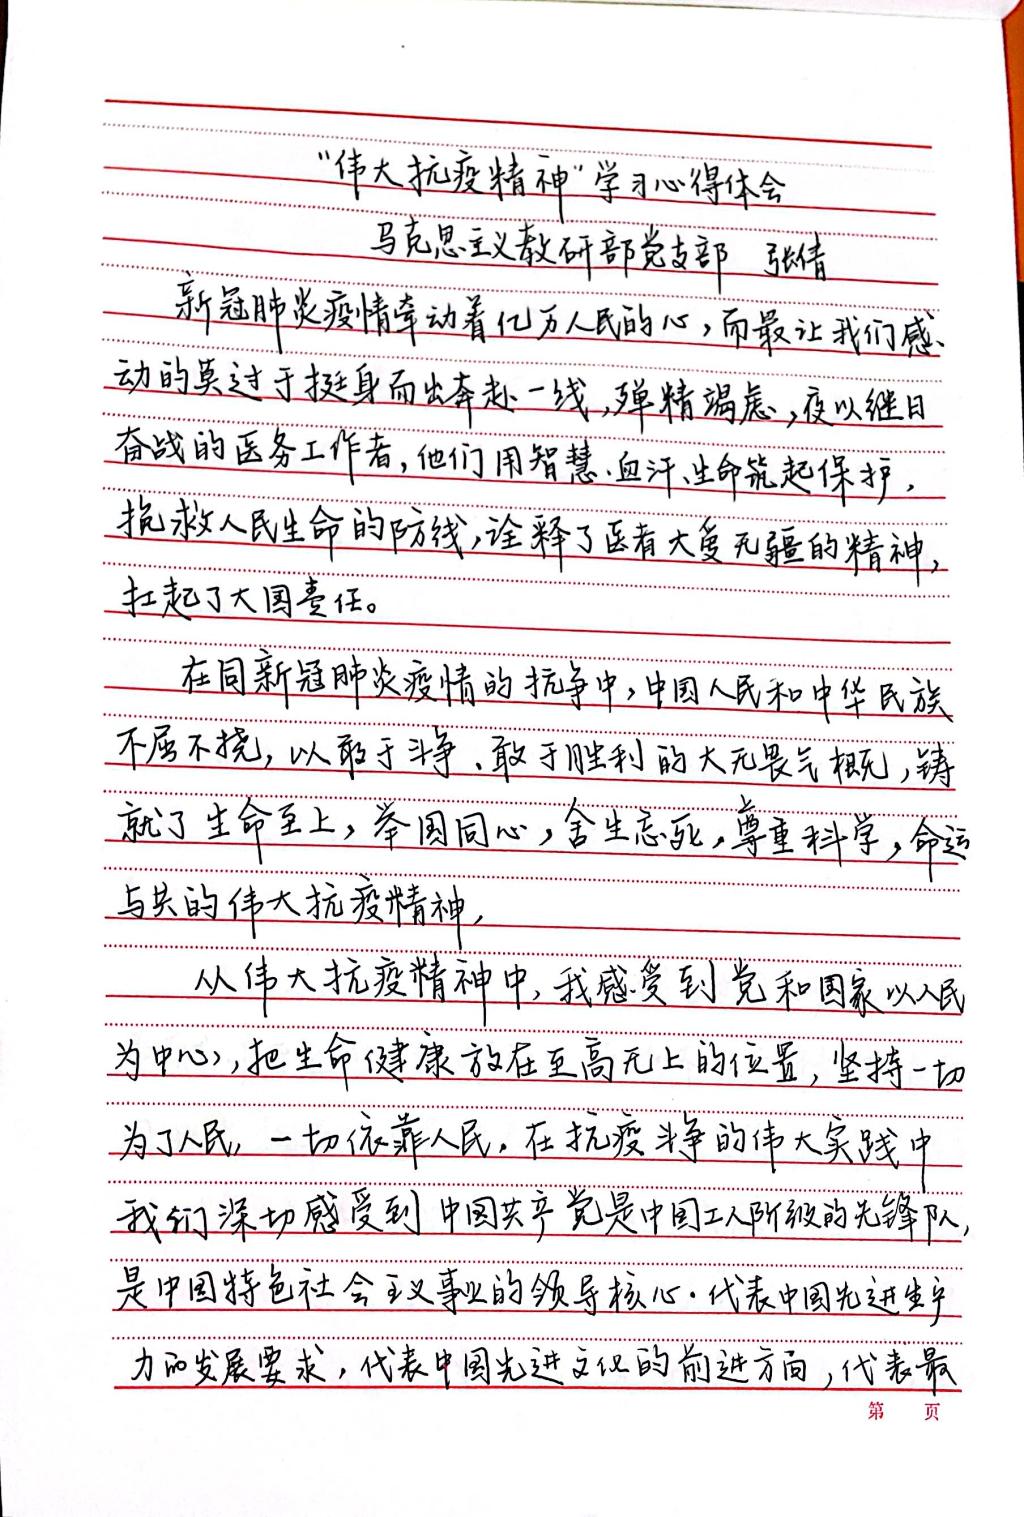 “伟大抗疫精神”学习心得体会
马克思主义教研部党支部 张倩
新冠肺炎疫情牵动着亿万人民的心,而最让我们感
动的莫过于挺身而出奔赴一线,殚精竭虑,夜以继日
奋战的医务工作者,他们用智慧、血汗、生命筑起保护、
抢救人民生命的防线,诠释了医者大爱无疆的精神,
扛起了大国责任。
在同新冠肺炎疫情的抗争中,中国人民和中华民族
不屈不挠,以敢于斗争、敢于胜利的大无畏气概,铸
就了生命至上,举国同心,舍生忘死,尊重科学,命运
与共的伟大抗疫精神,
从伟大抗疫精神中,我感受到党和国家以人民
为中心,把生命健康放在至高无上的位置,坚持一切
为了人民,一切依靠人民。在抗疫斗争的伟大实践中
我们深切感受到中国共产党是中国工人阶级的先锋队,
是中国特色社会主义事业的领导核心.代表中国先进生产
力的发展要求,代表中国先进文化的前进方向,代表最
第 页